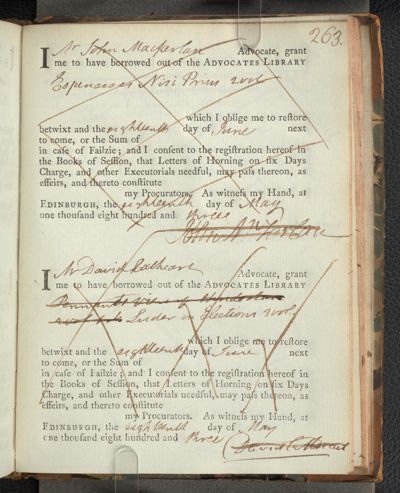 263.
I Mr John Macfarlan Advocate, grant
me to have borrowed out of the ADVOCATES LIBRARY
Espinasses Nisi Prius 2 vols
which I oblige me to reſtore
betwixt and the eighteenth day of June next
to come, or the Sum of
in caſe of Failzie; and I conſent to the regiſtration hereof in
the Books of Seſſion, that Letters of Horning on ſix Days
Charge, and other Executorials needful, may paſs thereon, as
effeirs, and thereto conſtitute
my Procurators. As witneſs my Hand, at
EDINBURGH, the eighteenth day of May
one thouſand eight hundred and three
John Macfarlan
I Mr David Cathcart Advocate, grant
me to have borrowed out of the ADVOCATES LIBRARY
Pennants View of Hindostan
2 vols Luder on Elections 2 vols
which I oblige me to reſtore
betwixt and the eighteenth day of June next
to come, or the Sum of
in caſe of Failzie; and I conſent to the regiſtration hereof in
the Books of Seſſion, that Letters of Horning on ſix Days
Charge, and other Executorials needful, may paſs thereon, as
effeirs, and thereto conſtitute
my Procurators. As witneſs my Hand, at
EDINBURGH, the eighteenth day of May
one thouſand eight hundred and three
David Cathcart